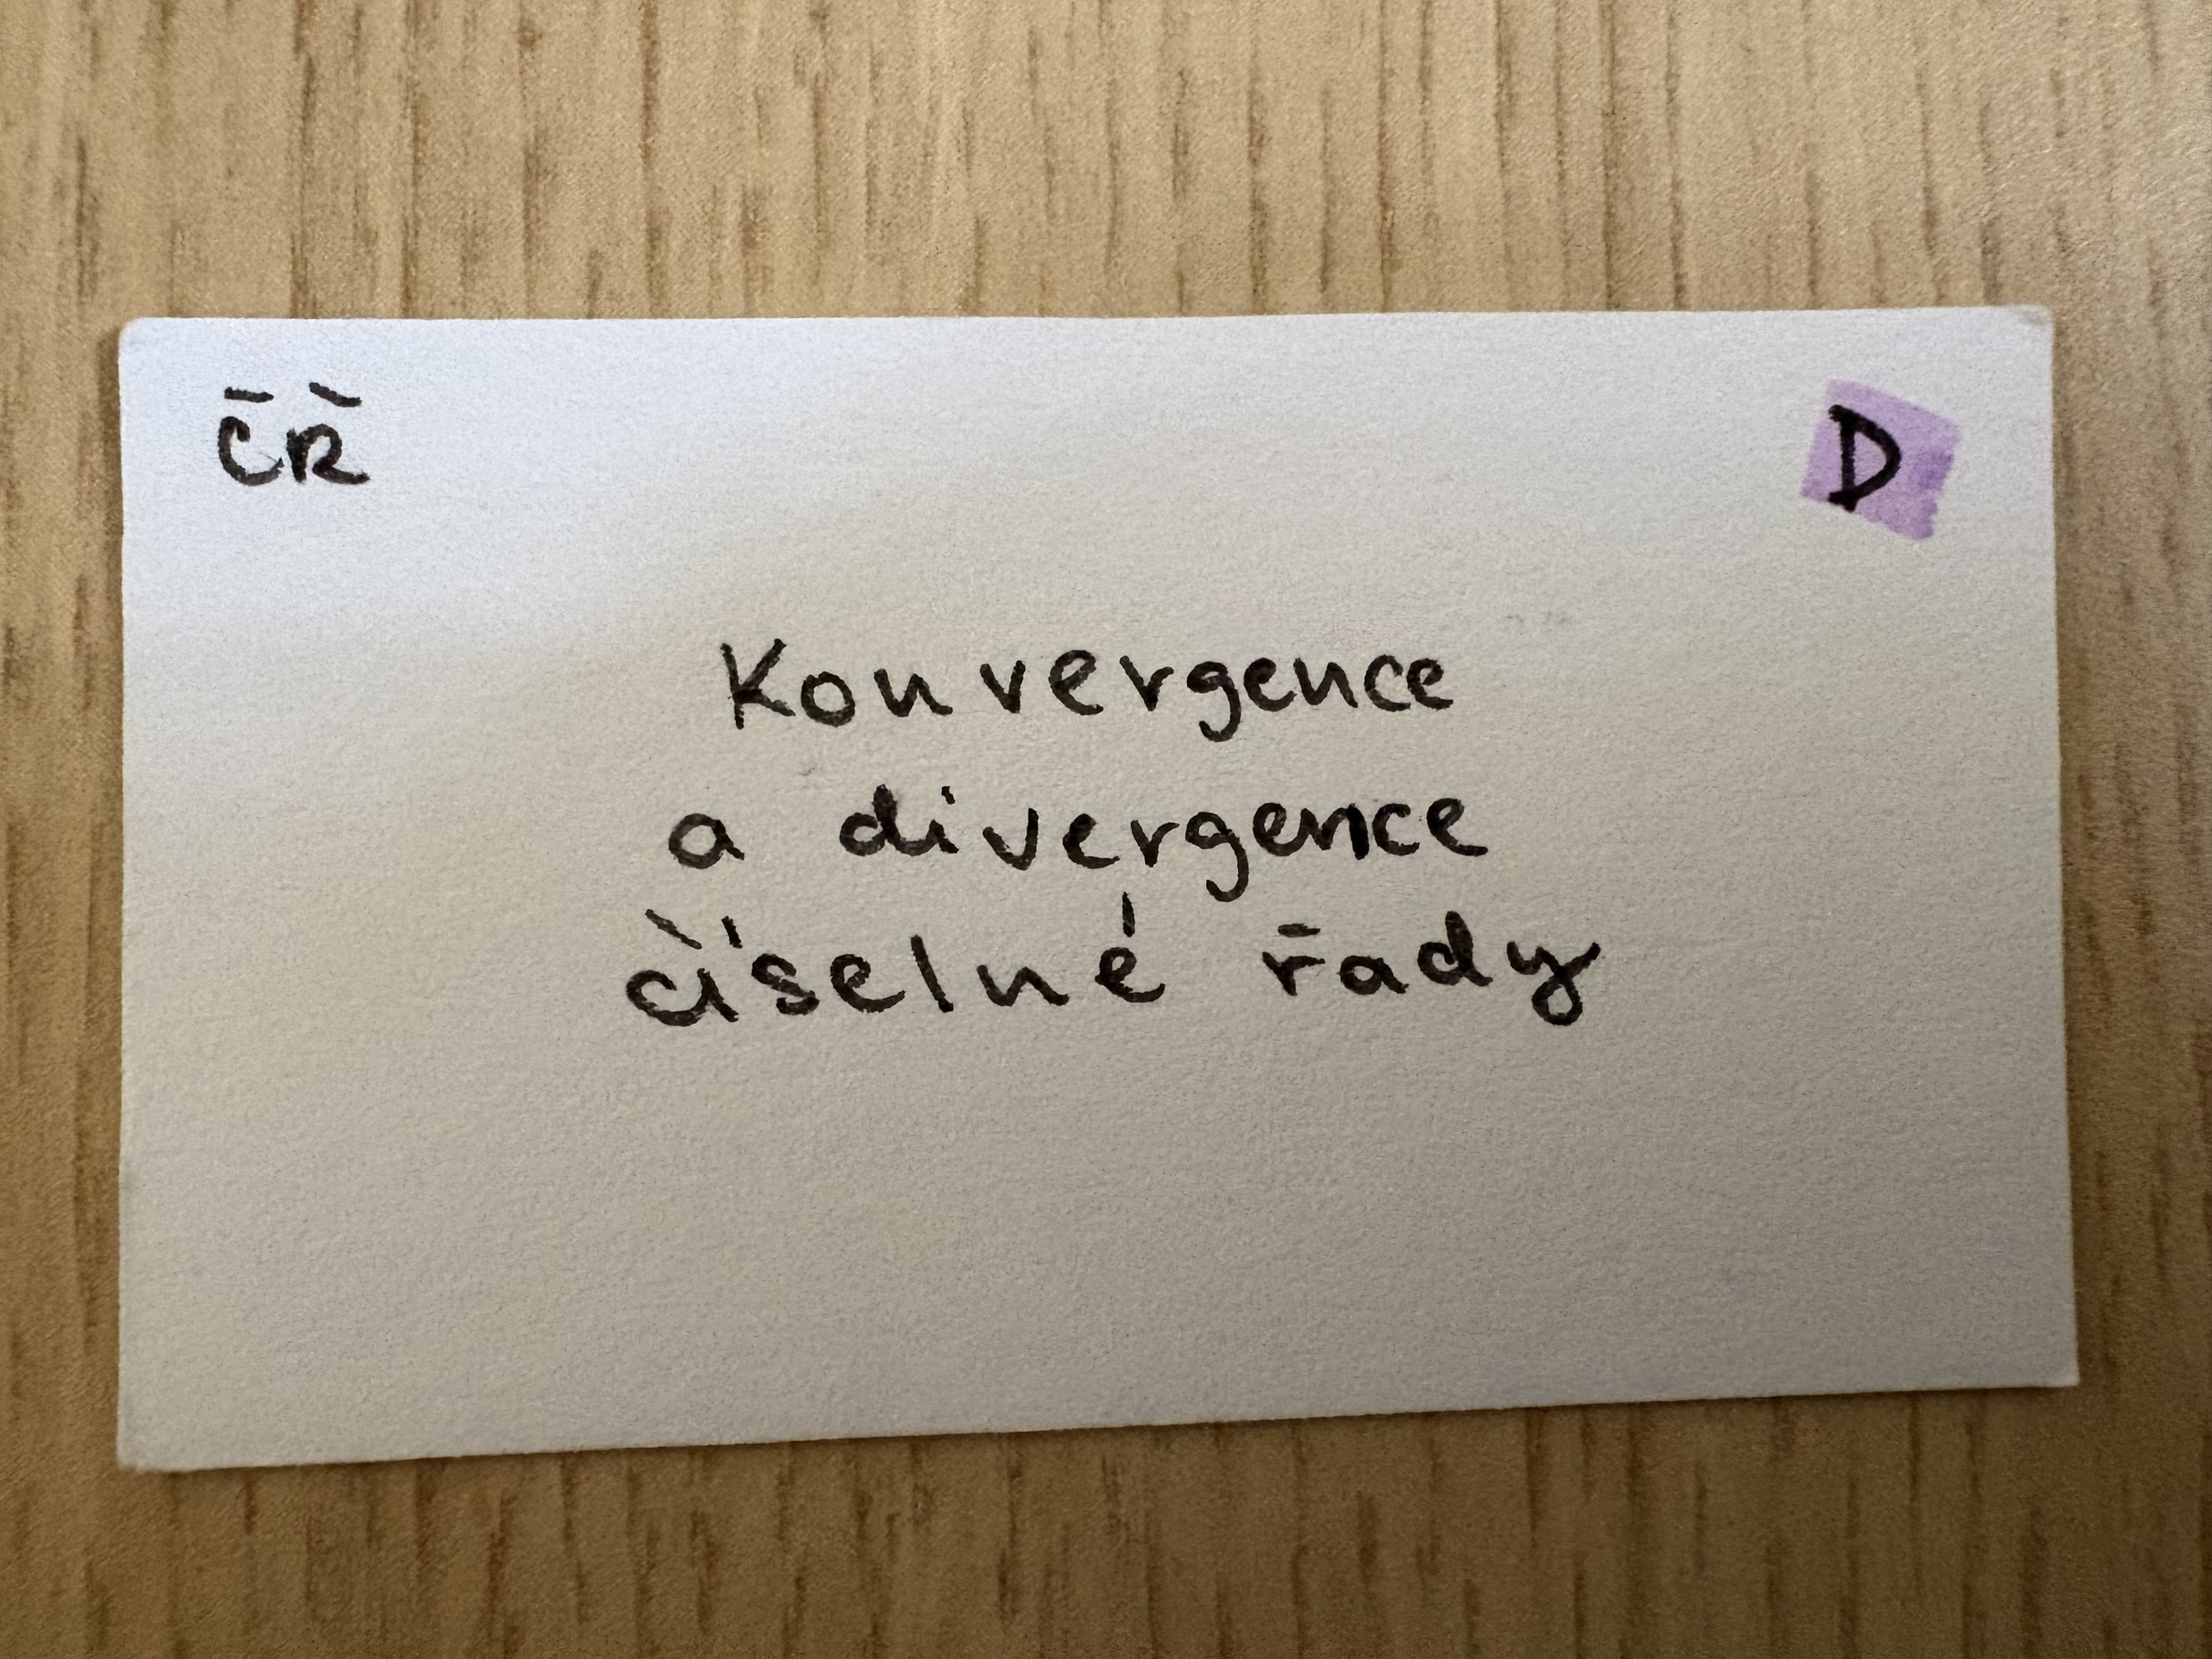 ČŘ
D
Konvergence
a divergence
číselné řady